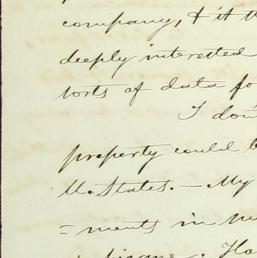 company, & it th
deeply interested
sorts of data fo
I don'
property could b
U. States. — My
= ments in m
. Ho